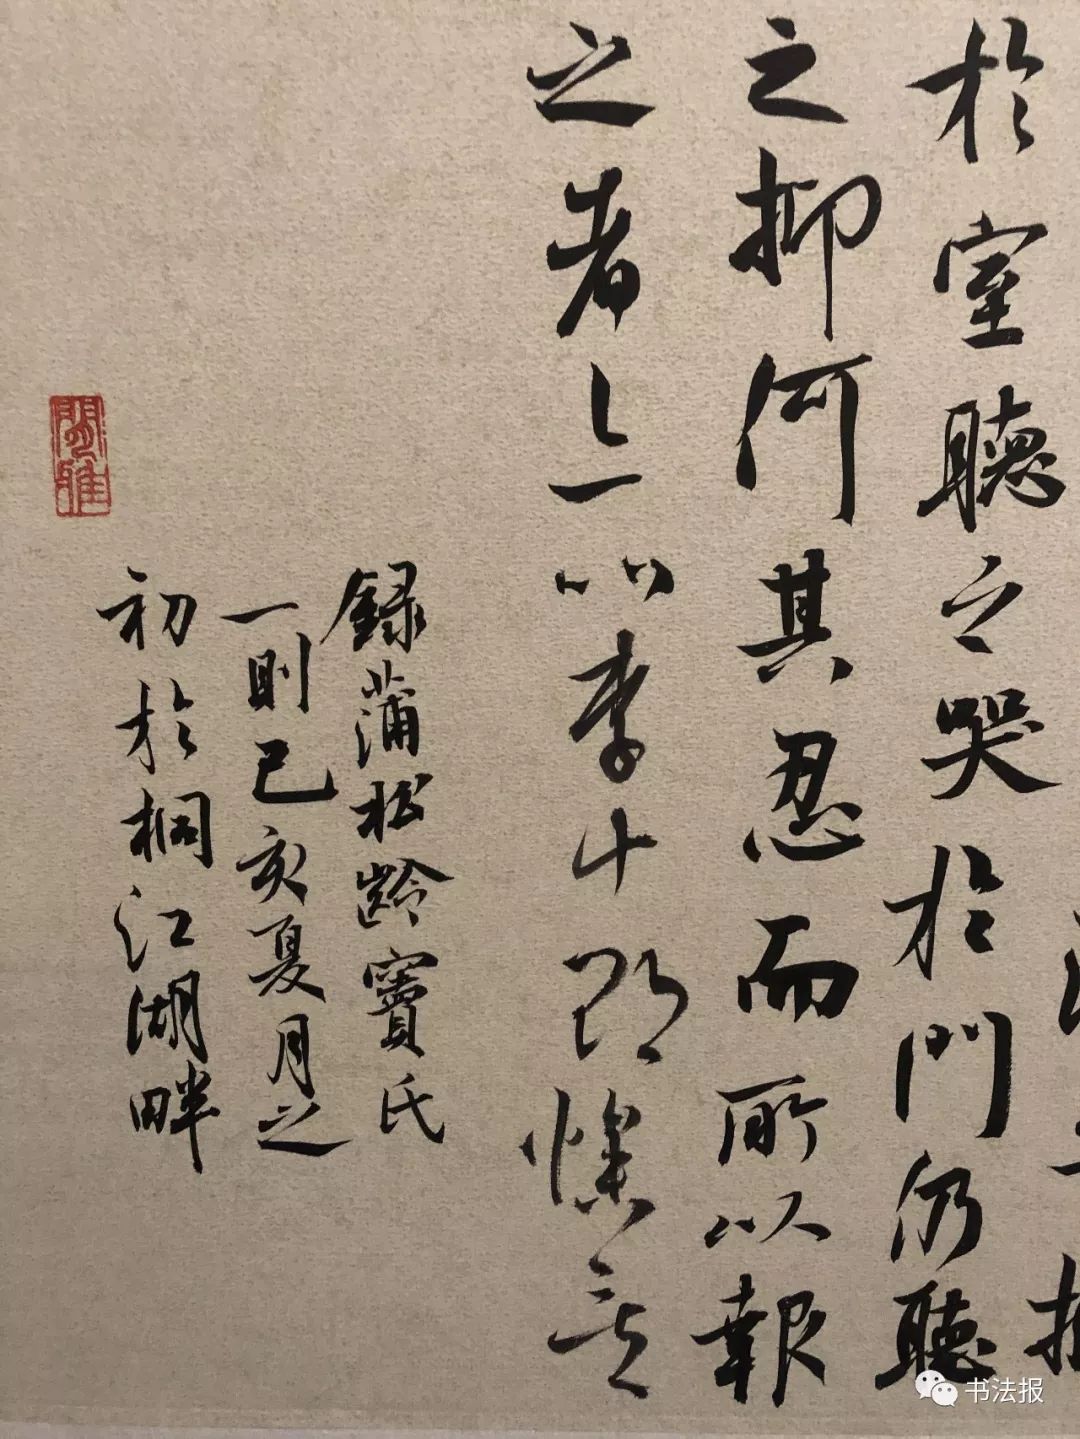 於室聽之哭於門仍聽
之抑何其忍而所以報
之者亦比李十郎慘矣
録蒲松齡竇氏
一則己亥夏月之
初於桐江湖畔
書法报